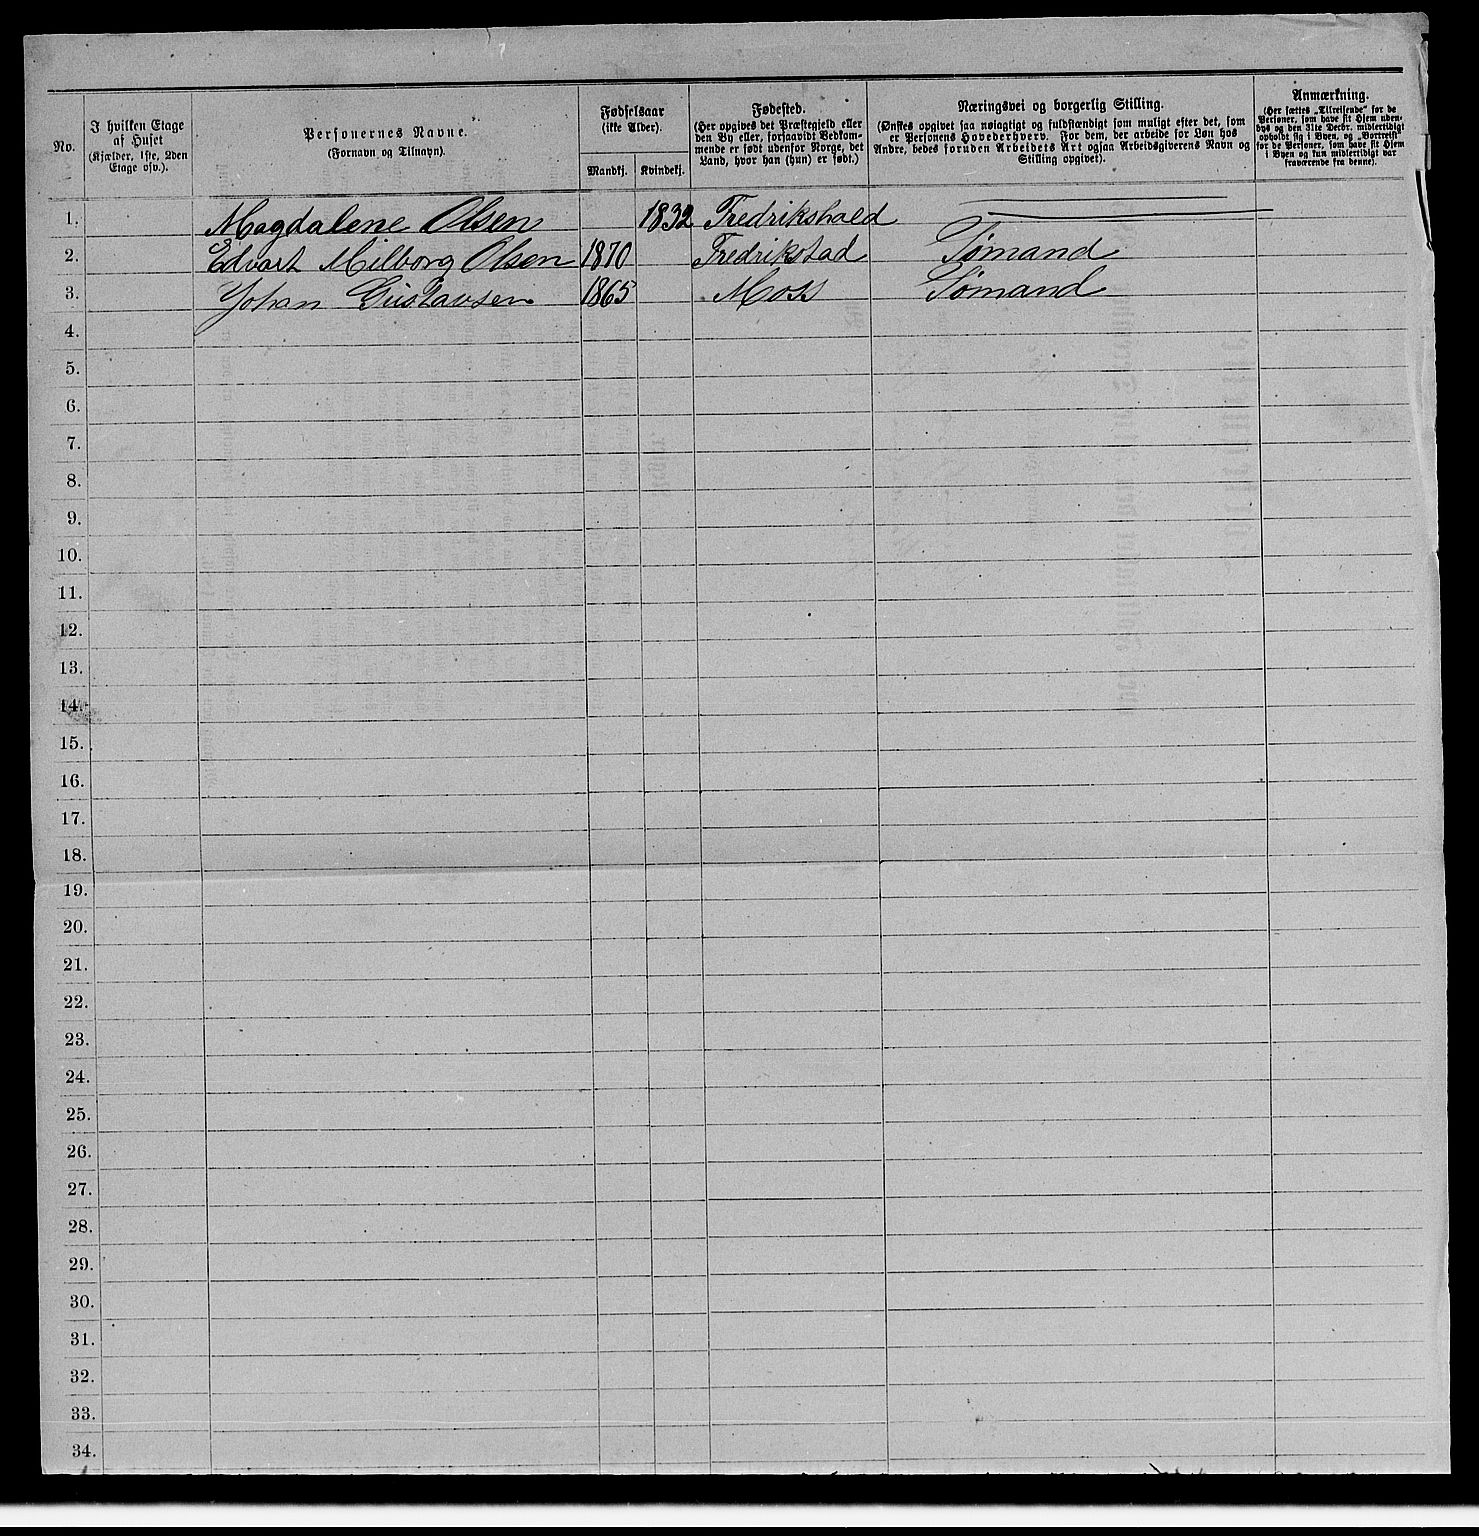 No.
I hvilken Etage
af Huset
(Kjælder, 1ste, 2den
Etage osv.).
Personernes Navne.
(Fornavn og Tilnavn).
Fødselsaar
(ikke Alder).
Mandkj. Kvindekj.
Fødested.
(Her opgives det Præstegjeld eller
den By eller, forsaavidt Vedkom-
mende er født udenfor Norge, det
Land, hvor han (hun) er født.)
Næringsvei og borgerlig Stilling.
(Ønskes opgivet saa nøiagtigt og fuldstændigt som muligt efter det, som
er Personens Hovederhverv. For dem, der arbeide for Løn hos
Andre, bedes foruden Arbeidets Art ogsaa Arbeidsgiverens Navn og
Stilling opgivet).
Anmærkning.
(Her sættes „Tilreisende“ for de
Personer, som have sit Hjem uden-
bys og den 31te Decbr. midlertidigt
opholdt sig i Byen, og „Bortreist“
for de Personer, som have sit Hjem
i Byen og kun midlertidigt var
fraværende fra denne).
1. Magdalene Olsen 1832 Fredrikshald
2. Edvart Milborg Olsen 1870 Fredrikstad Sømand
3. Johan Gustavsen 1865 Moss Sømand
4.
5.
6.
7.
8.
9.
10.
11.
12.
13.
14.
15.
16.
17.
18.
19.
20.
21.
22.
23.
24.
25.
26.
27.
28.
29.
30.
31.
32.
33.
34.